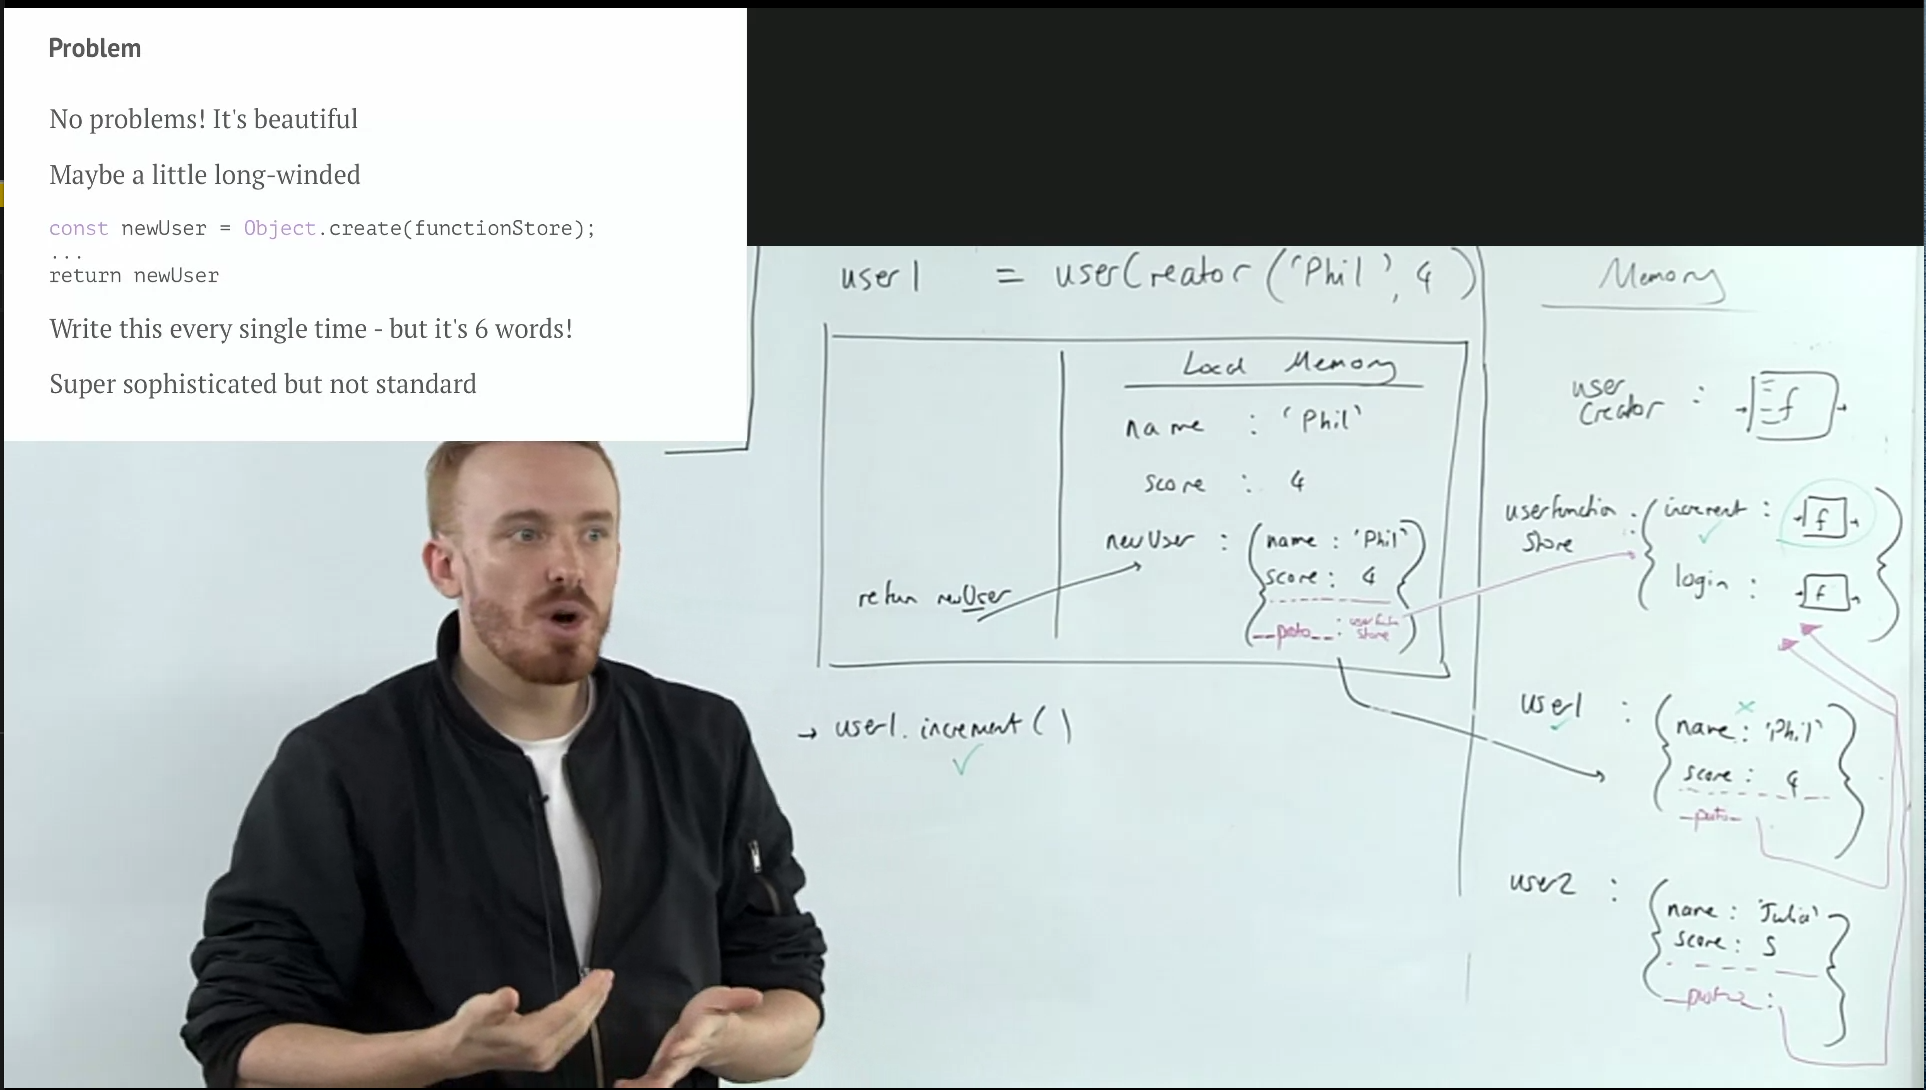 Problem
No problems! It's beautiful
Maybe a little long-winded
const newUser = Object.create(functionStore);
...
return newUser
Write this every single time - but it's 6 words!
Super sophisticated but not standard
user1 = userCreator ('Phil', 4)
Local Memory
name : 'Phil'
score : 4
newUser : { name : 'Phil'
score : 4
__proto__ : userfunction store }
return newUser
→ user1.increment ( )
Memory
user Creator : f
userfunction store : { increment : f
login : f }
user1 : { name : 'Phil'
score : 4
__proto__ }
user2 : { name : 'Julia'
score : 5
__proto__ : }